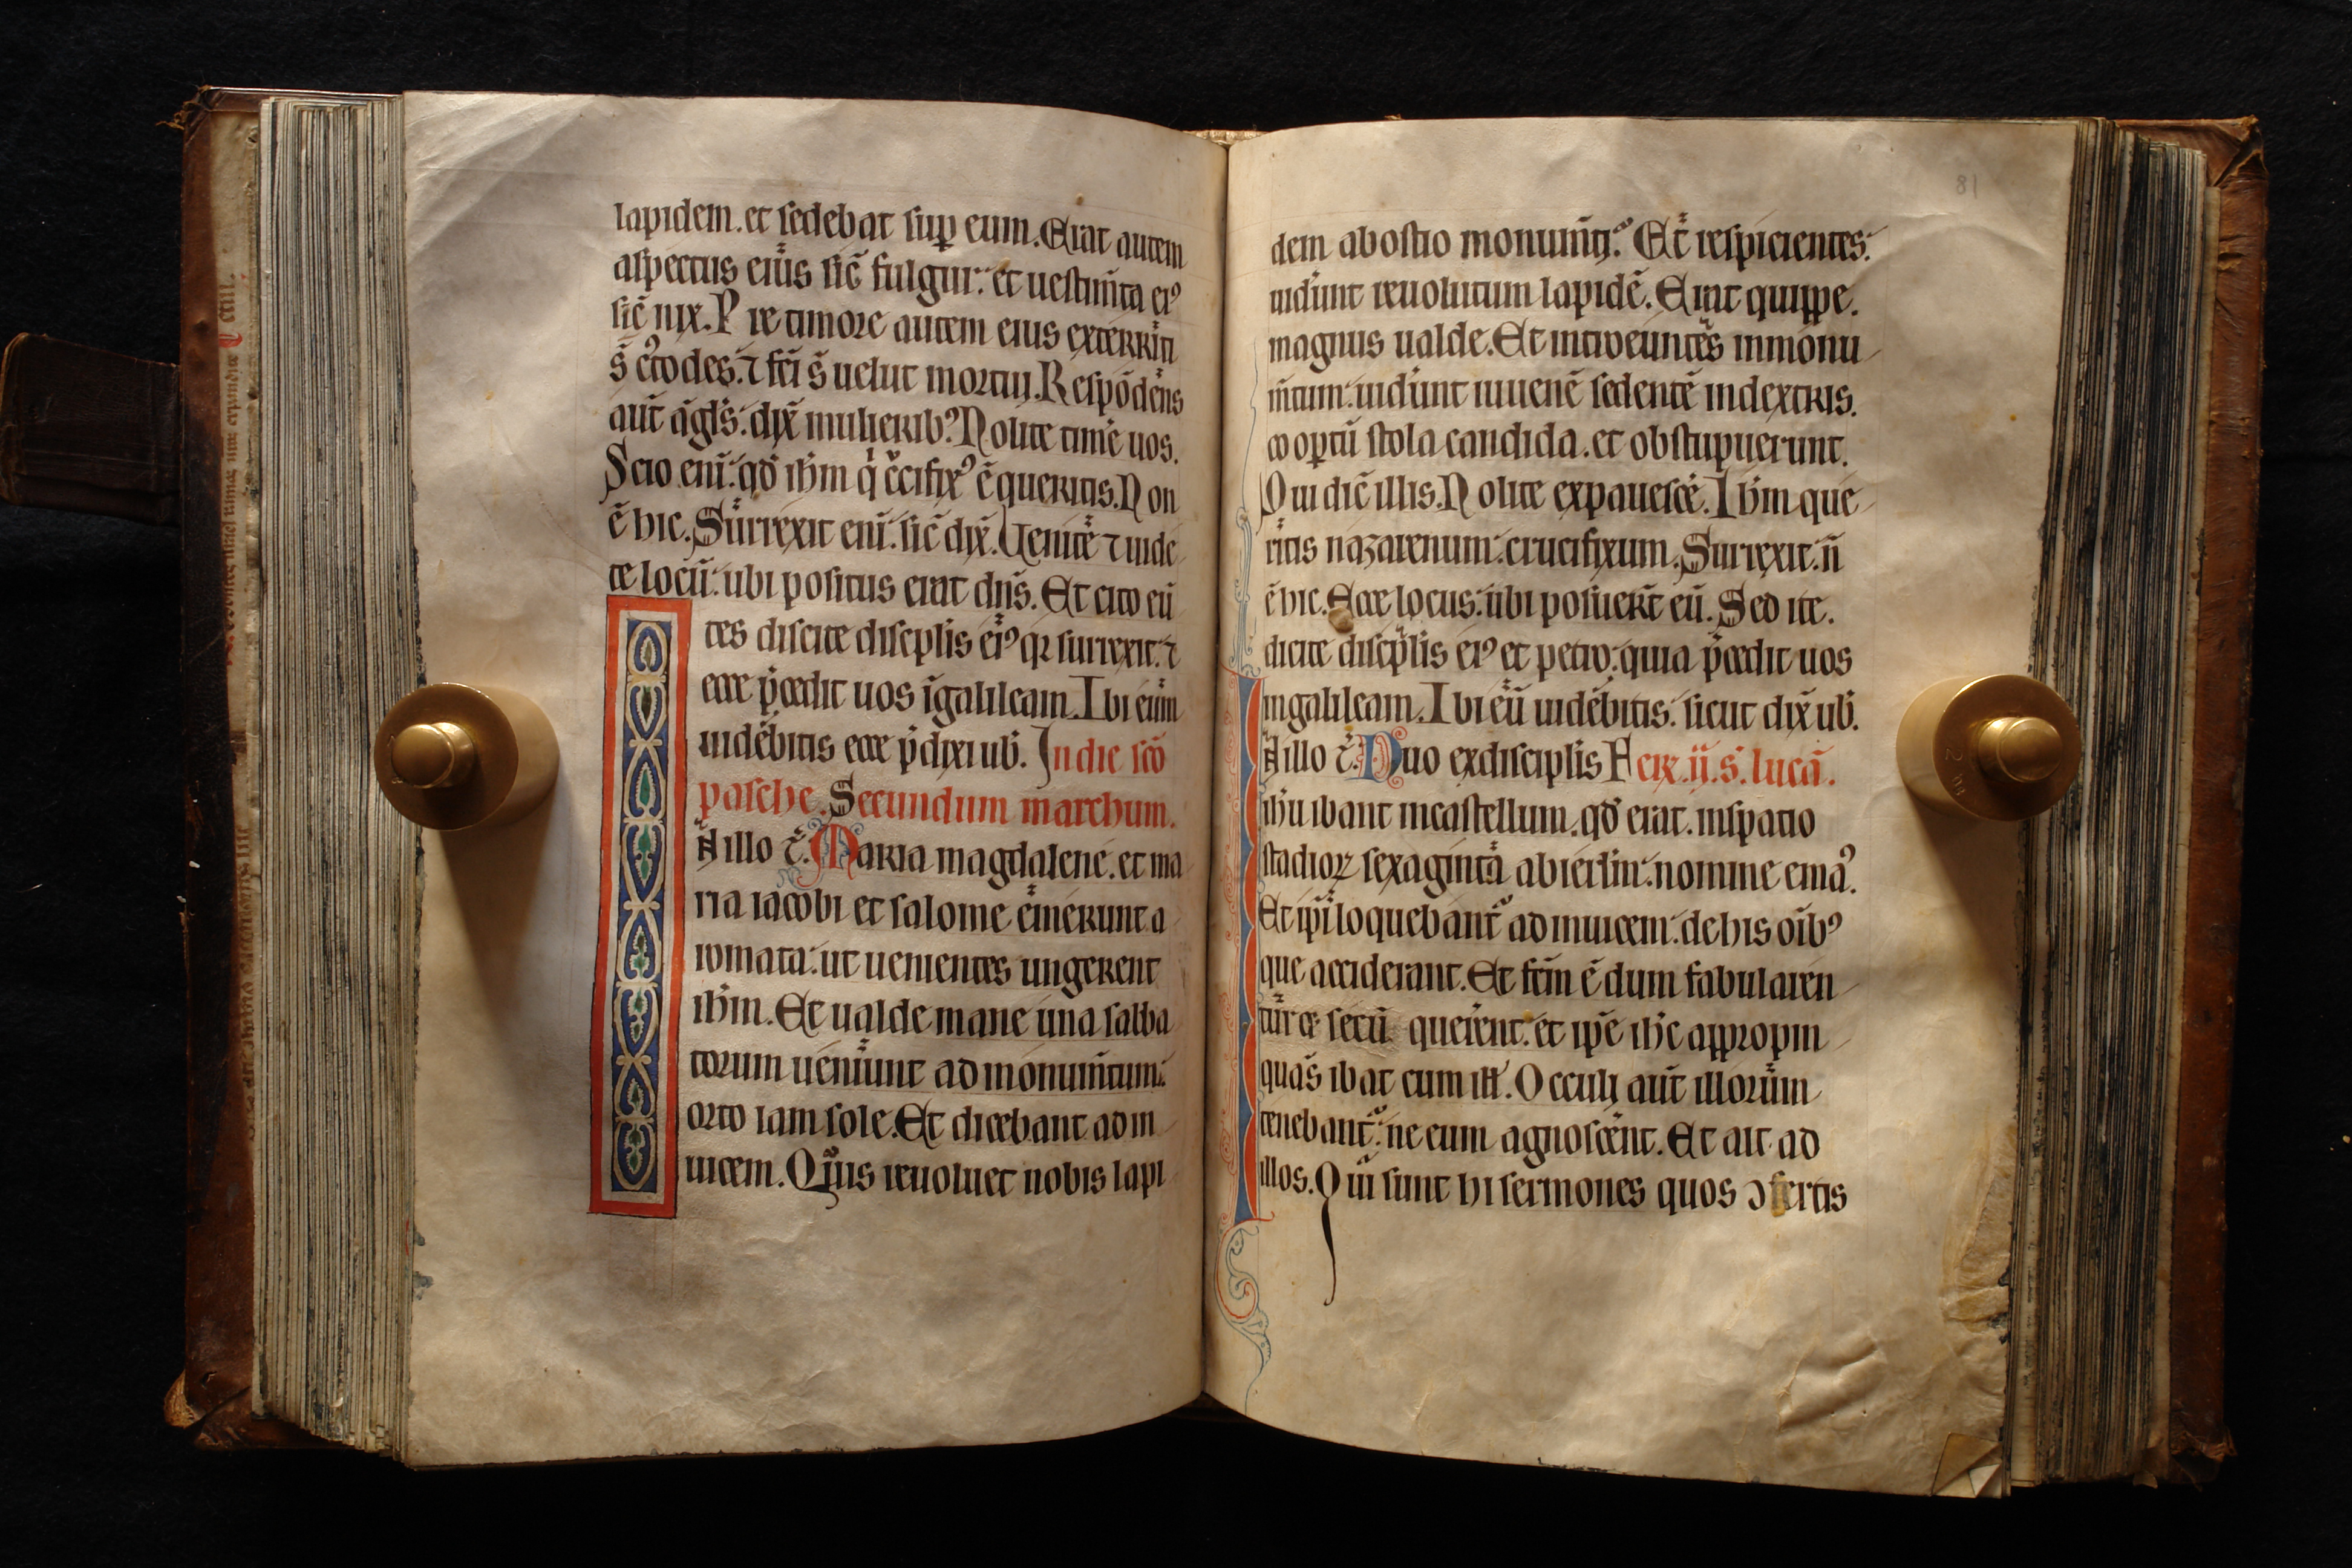 lapidem. et sedebat sup eum. Erat autem
aspectus eius sic̄ fulgur: et uestim̄ta ei⁹
sic̄ nix. Pre timore autem eius exterriti
s̄ c̄todes. ⁊ fc̄i s̄ uelut mortui. Respōdens
aut̄ āgl̄s: dix̄ mulierib⁹. Nolite timē uos.
Scio eni̅: qd̄ ih̄m q̇ c̄cifix⁹ ē queritis. Non
ē hic. Surrexit eni̅: sic̄ dix̄. Uenite ⁊ uide
te locū: ubi positus erat dn̄s. Et cito eū
tes dicite discplis ei⁹ qꝛ surrexit: ⁊
ecce p̄cedit uos ī galileam. Ibi eum
uidebitis ecce p̄dixi ub̄. In die sc̄o
pasche. Secundum marchum.
In illo t̄. Maria magdalene. et ma
ria iacobi et salome emerunt a
romata: ut uenientes ungerent
ih̄m. Et ualde mane una sabba
torum ueniunt ad monum̄tum:
orto iam sole. Et dicebant ad in
uicem. Quis reuoluet nobis lapi
81
dem ab ostio monum̄ti. Et respicientes:
uider̄unt reuolutum lapidē. Erat quippe.
magnus ualde. Et introeuntes in monu
m̄tum: uider̄unt iuuenē sedentē in dextris.
coop̄tū stola candida. et obstupuerunt.
Qui dic̄ illis. Nolite expauescē. Ih̄m que
ritis nazarenum: crucifixum. Surrexit: n̄
ē hic. Ecce locus: ubi posuer̄t eū. Sed ite.
dicite discp̄lis ei⁹ et petro: quia p̄cedit uos
in galileam. Ibi eū uidebitis: sicut dix̄ ub̄.
In illo t̄. Duo ex discip̄lis Fer̄. ij. s̄. lucā.
ih̄u ibant in castellum. qd̄ erat. in spatio
stadioꝝ sexaginta ab ierl̄m: nomine ema⁹.
Et ip̄i loquebant̄ ad inuicem: de his oīb⁹
que acciderant. Et fc̄m ē dum fabularen
tur ⁊ secū querēent: et ip̄e ih̄c appropin
quās ibat cum ill̄. Occuli aut̄ illorum
tenebant̄: ne eum agnoscēnt. Et ait ad
illos. Qui sunt hi sermones quos ↄfertis